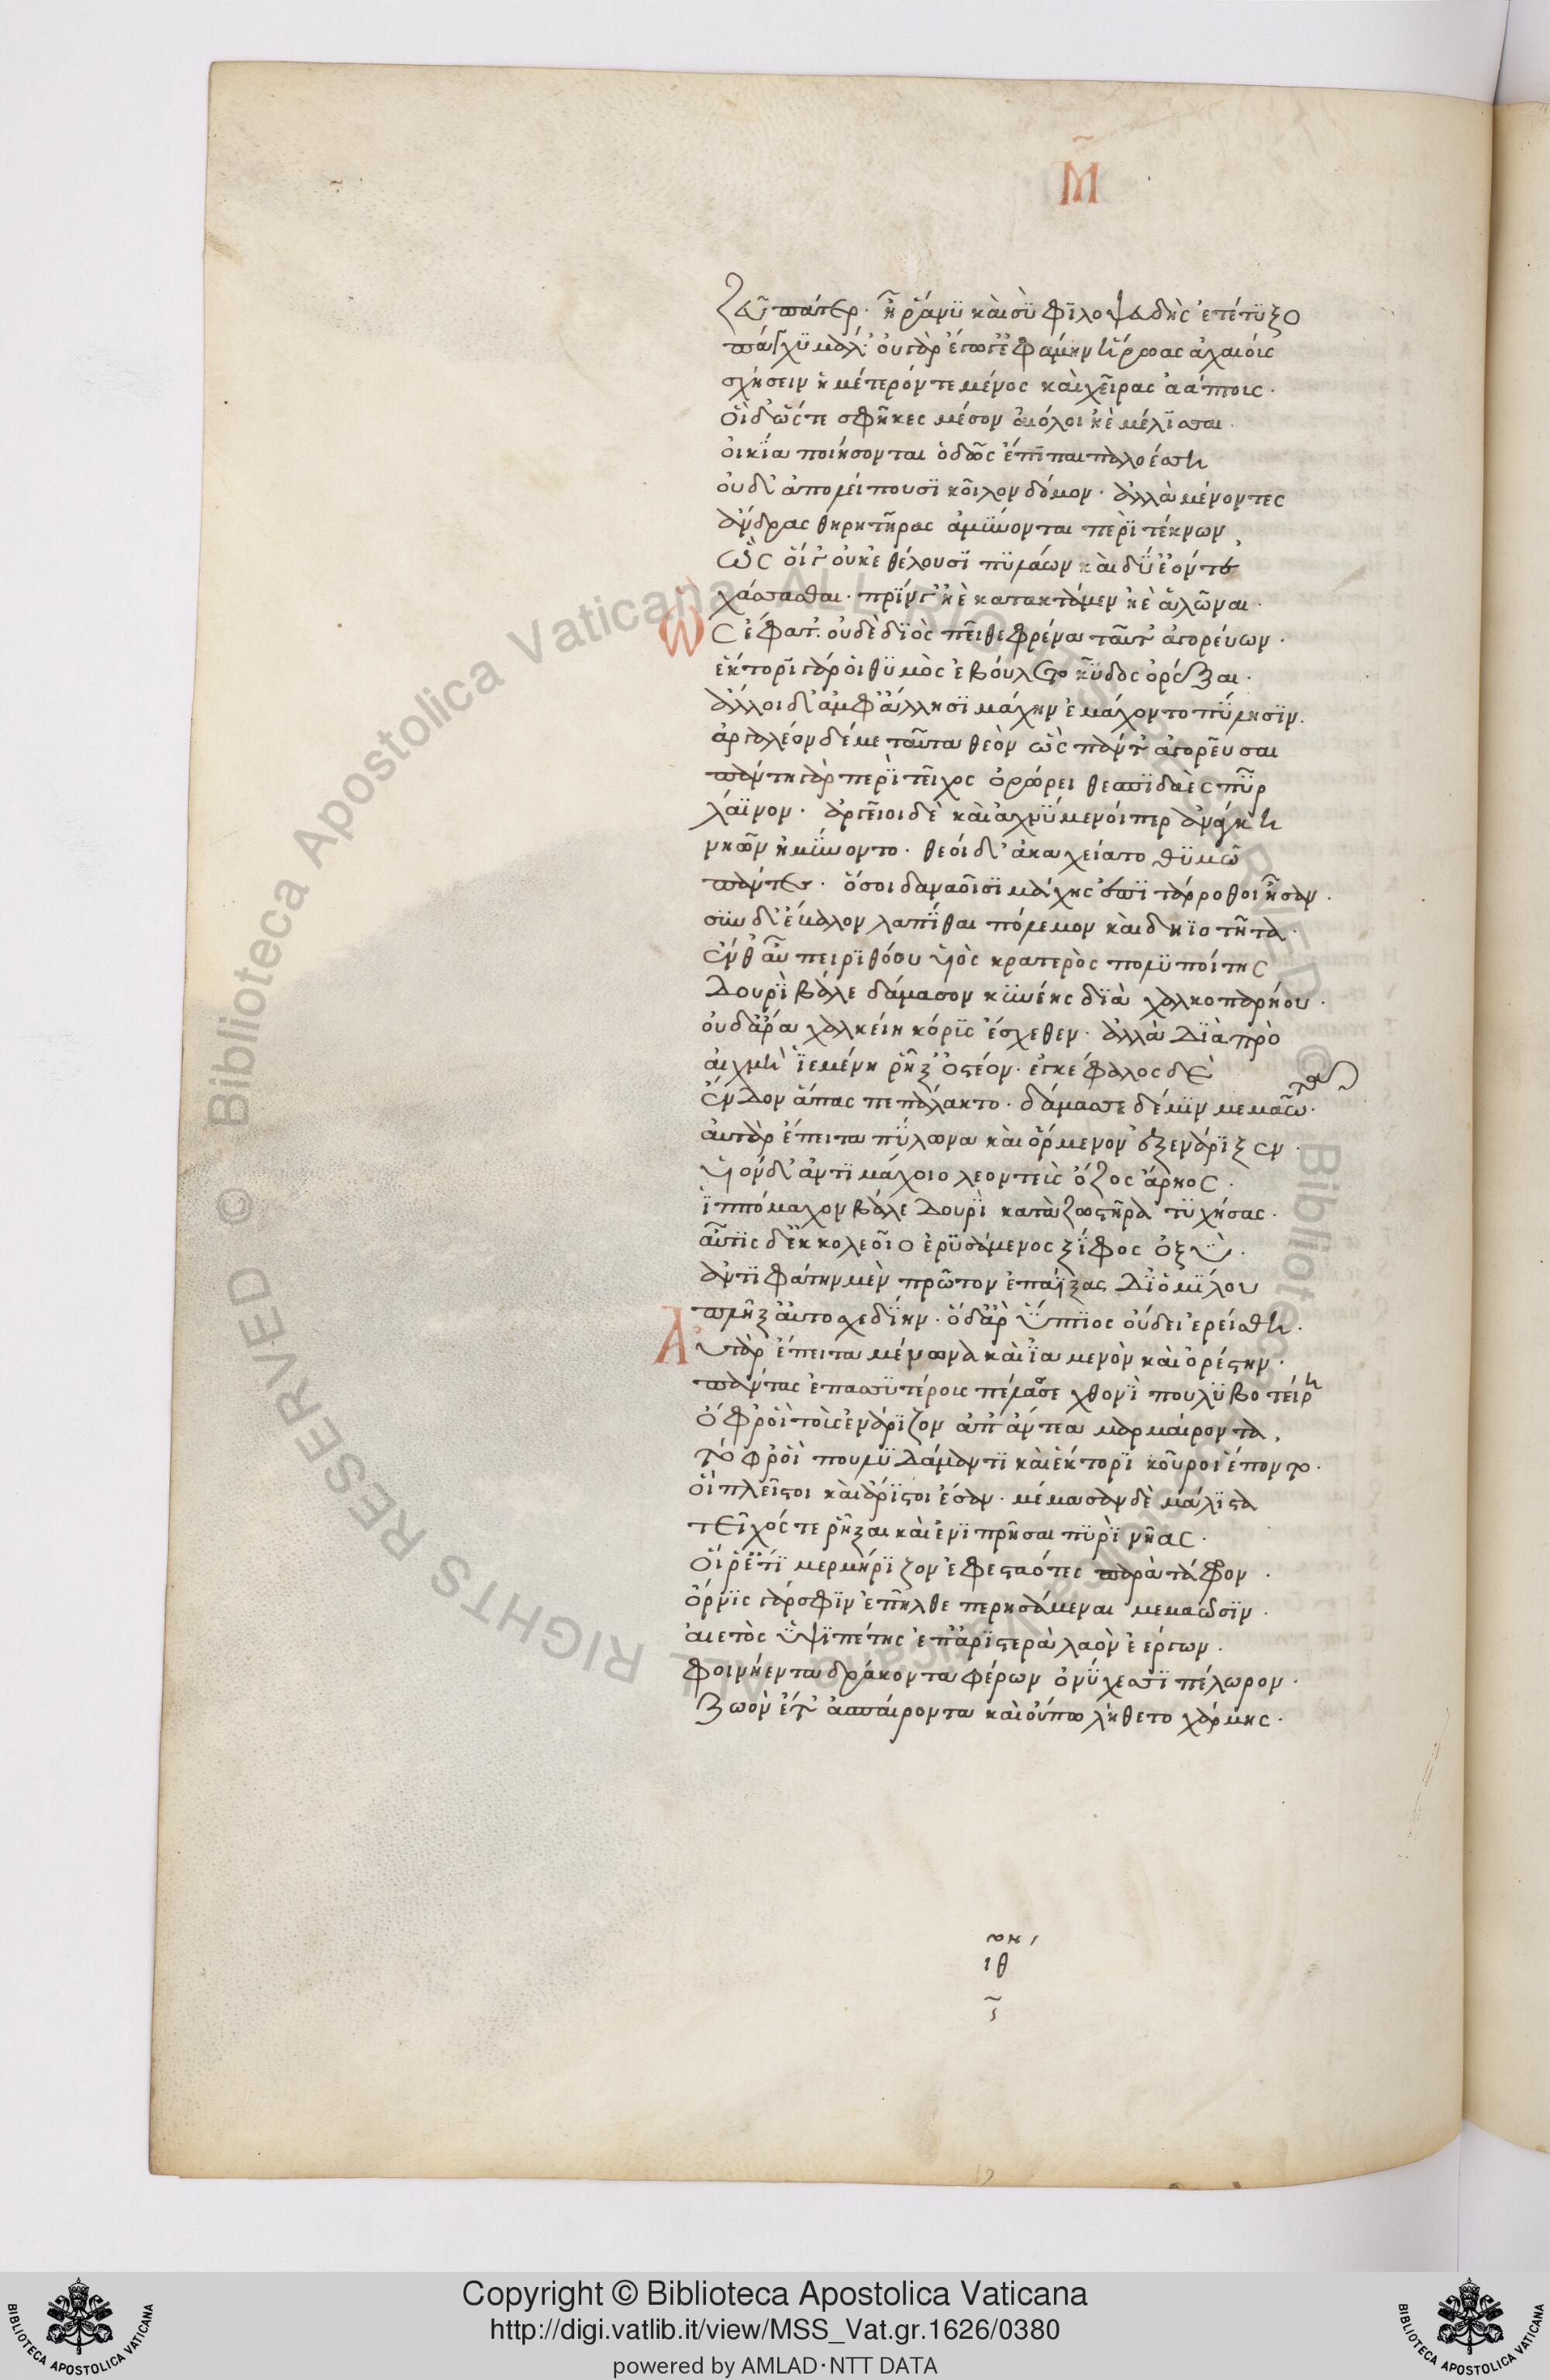 Μ̃
Ζεῦ πάτερ· ἦ ῥάνϋ καὶ σὺ φῑλοψευδὴς ἐτέτϋξο
πάγχϋ μάλ'· οὐ γὰρ ἔγωγ' ἐφάμην ἥρωας ἀχαιοὺς
σχήσειν ἡμέτερόν τε μένος καὶ χεῖρας ἀάπτοις·
οἳ δ' ὥς τε σφῆκες μέσον αἰόλοι ἠὲ μέλϊσσαι·
οἰκΐα ποιήσονται ὁδῶς ἔπϊ παιπαλοέσσῃ
οὐδ' ἀπολείπουσϊ κοῖλον δόμον· ἀλλὰ μένοντες
ἄνδρας θηρητῆρας ἀμΰνονται περὶ τέκνων,
ὣς οἵ γ' οὐκ ἐθέλουσϊ πϋλάων καὶ δΰ' ἐόντε
χάσσασθαι· πρΐν γ' ἠὲ κατακτάμεν ἠὲ ἁλῶναι·
ὣς ἔφατ'· οὐδὲ δϊὸς πεῖθε φρένα ταῦτ' ἀγορεύων·
ἕκτορϊ γάρ οἱ θϋμὸς ἐβούλετο κῦδος ὀρέξαι·
ἄλλοι δ' ἀμφ' ἄλλησϊ μάχην ἐμάχοντο πΰλησϊν.
ἀργαλέον δέ με ταῦτα θεὸν ὣς πάντ' ἀγορεῦσαι
πάντη γὰρ περὶ τεῖχος ὀρώρει θεσπϊδαὲς πῦρ
λάϊνον· ἀργεῖοι δὲ καὶ ἀχνΰμενοί περ ἀνάγκῃ
νηῶν ἠμΰνοντο· θεοὶ δ' ἀκαχείατο θϋμῶ
πάντες· ὅσοι δαναοῖσϊ μάχης ἐπϊτάρροθοι ἦσαν·
σὺν δ' ἔβαλον λαπΐθαι πόλεμον καὶ δηϊοτῆτα·
ἔνθ' αὖ πειρϊθόου υἱὸς κρατερὸς πολϋποίτης
δουρὶ βάλε δάμασον κϋνέης δϊὰ χαλκοπαρήου·
οὐδ' ἄρα χαλκείη κόρϋς ἔσχεθεν· ἀλλὰ δϊὰ πρὸ
αἰχμὴ ϊεμένη ῥῆξ' ὀστέον· ἐγκέφαλος δὲ
ἔνδον ἅπας πεπάλακτο· δάμασσε δέ μϊν μεμαῶτα·
αὐτὰρ ἔπειτα πΰλωνα καὶ ὄρμενον ἐξενάρϊξεν·
υἱὸν δ' ἀντϊμάχοιο λεοντεὺς ὄζος ἄρηος·
ϊππόμαχον βάλε δουρὶ κατὰ ζωστῆρα τϋχήσας·
αὖτϊς δ' ἐκ κολεοῖο ἐρϋσάμενος ξΐφος ὀξὺ·
ἀντϊφάτην μὲν πρῶτον ἐπαΐξας δϊ' ὁμΐλου
πλῆξ' αὐτοσχεδΐην· ὁ δ' ἄρ' ὕπτϊος οὔδει ἐρείσθη·
Αὐτὰρ ἔπειτα μένωνα καὶ ϊαμενὸν καὶ ὀρέστην·
πάντας ἐπασσϋτέρους πέλασε χθονὶ πουλϋβοτείρῃ
ὄφρ' οἱ τοὺς ἐνάρϊζον ἀπ' ἔντεα μαρμαίροντα,
τόφρ' οἳ πουλϋδάμαντϊ καὶ ἕκτορϊ κοῦροι ἕποντο·
οἳ πλεῖστοι καὶ ἄρϊστοι ἔσαν· μέμασαν δὲ μάλϊστα
τεῖχός τε ῥῆξαι καὶ ἐνϊπρῆσαι πϋρὶ νῆας·
οἵ ῥ' ἔτϊ μερμήρϊζον ἐφεσταότες παρὰ τάφρον·
ὄρνϊς γάρ σφϊν ἐπῆλθε περησάμεναι μεμαῶσϊν·
αἰετὸς ὑψϊπέτης ἐπ' ἀρϊστερὰ λαὸν ἐέργων·
φοινήεντα δράκοντα φέρων ὀνΰχεσσϊ πέλωρον·
ζωὸν ἔτ' ἀσπαίροντα καὶ οὔπω λήθετο χάρμης·
ιθ
Copyright © Biblioteca Apostolica Vaticana
http://digi.vatlib.it/view/MSS_Vat.gr.1626/0380
powered by AMLAD·NTT DATA
BIBLIOTECA APOSTOLICA VATICANA
BIBLIOTECA APOSTOLICA VATICANA
© Biblioteca Apostolica Vaticana ALL RIGHTS RESERVED © Biblioteca Apostolica Vaticana ALL RIGHTS RESERVED